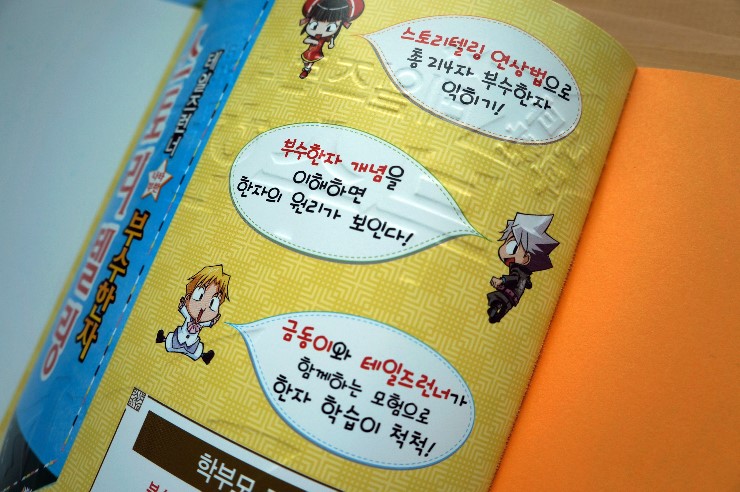 스토리텔링 연상법으로
총 214자 부수한자
익히기!
부수한자 개념을
이해하면
한자의 원리가 보인다!
금동이와 테일즈런너가
함께하는 모험으로
한자 학습이 척척!
부수한자
학부모